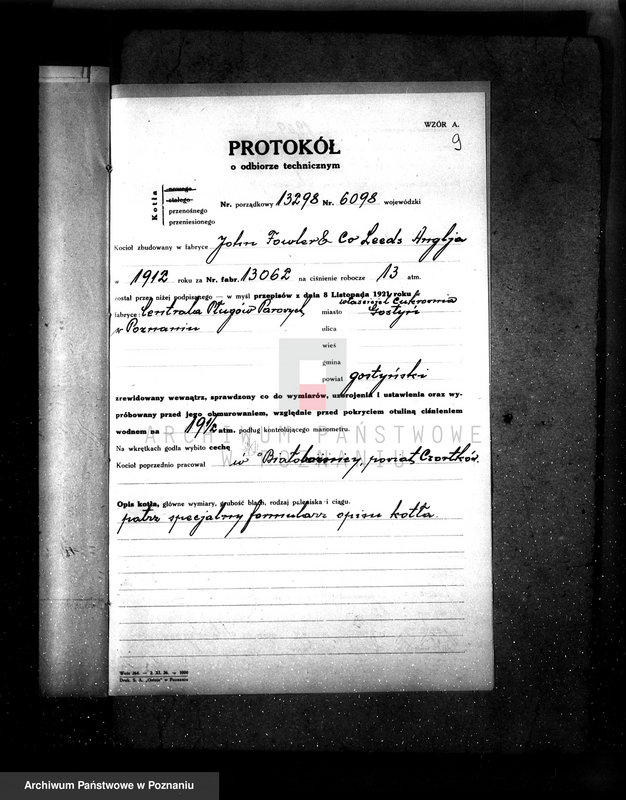 WZÓR A.
9
PROTOKÓŁ
o odbiorze technicznym
Kotła
nowego
stałego
przenośnego
przeniesionego
Nr. porządkowy 13298 Nr. 6098 wojewódzki
Kocioł zbudowany w fabryce John Fowler & Co Leeds Anglja
w 1912 roku za Nr. fabr. 13062 na ciśnienie robocze 13 atm.
został przez niżej podpisanego — w myśl przepisów z dnia 8 Listopada 1921 roku w
właściciel Cukrownia
fabryce: Centrala Pługów Parowych miasto Gostyń
w Poznaniu
ulica
wieś
gmina
powiat gostyński
zrewidowany wewnątrz, sprawdzony co do wymiarów, uzbrojenia i ustawienia oraz wy-
próbowany przed jego obmurowaniem, względnie przed pokryciem otuliną ciśnieniem
wodnem na 19 1/2 atm. podług kontrolującego manometru.
Na wkrętkach godła wybito cechę
Kocioł poprzednio pracował w Białobożnicy, powiat Czortków.
Opis kotła, główne wymiary, grubość blach, rodzaj paleniska i ciągu.
patrz specjalny formularz opisu kotła.
Druk. S. A. „Ostoja" w Poznaniu
ARCHIWUM PAŃSTWOWE
W POZNANIU
Archiwum Państwowe w Poznaniu